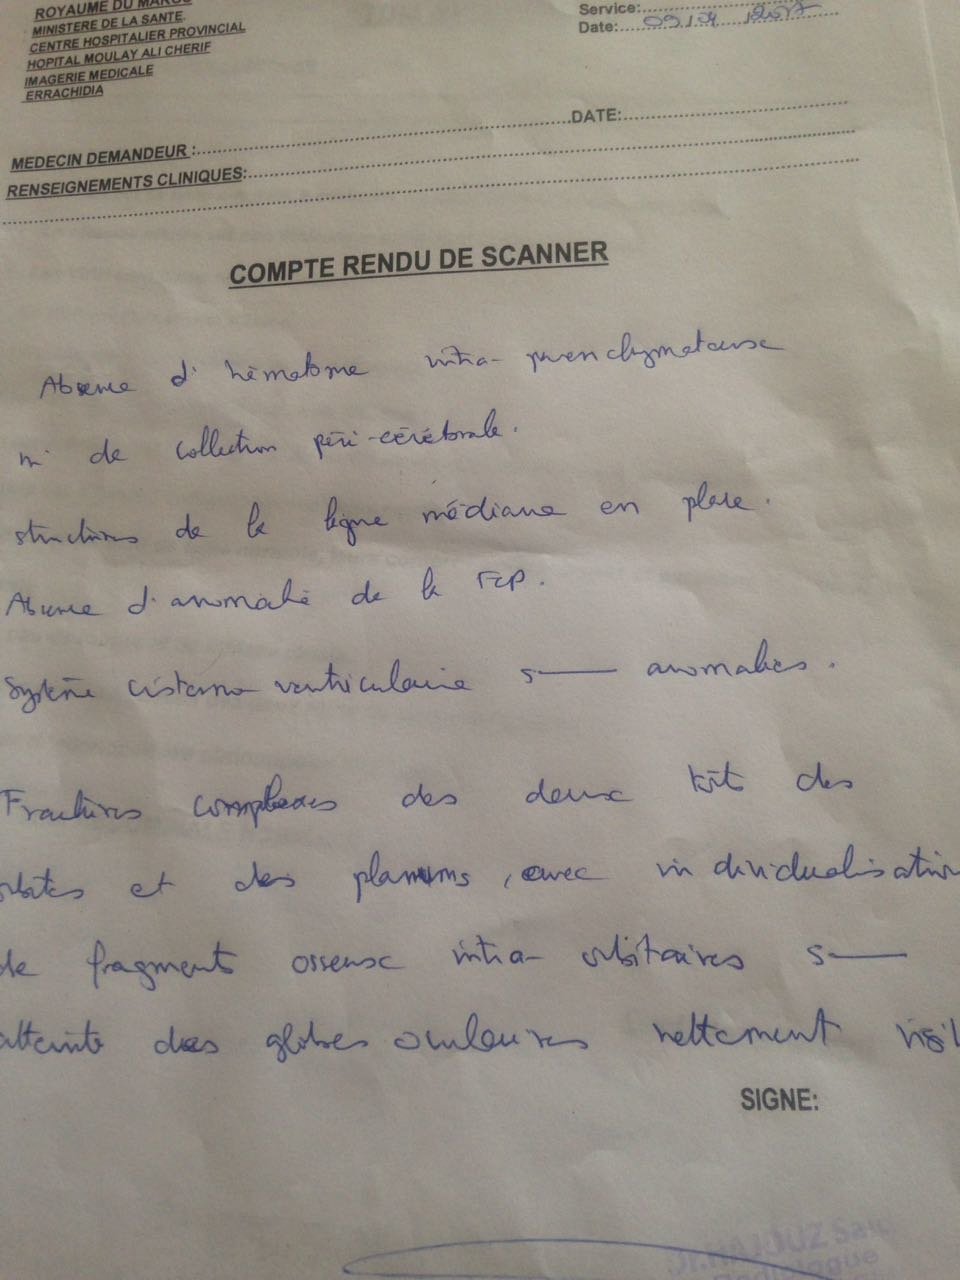 ROYAUME DU MAROC
MINISTERE DE LA SANTE
CENTRE HOSPITALIER PROVINCIAL
HOPITAL MOULAY ALI CHERIF
IMAGERIE MEDICALE
ERRACHIDIA
Service:
Date: 2017
DATE:
MEDECIN DEMANDEUR :
RENSEIGNEMENTS CLINIQUES:
COMPTE RENDU DE SCANNER
Absence d'hématome intra-parenchymateuse
ni de collection péri-cérébrale.
structures de la ligne médiane en place.
Absence d'anomalie de la FCP.
Système cisterno-ventriculaire s— anomalies.
Fractures complexes des deux toit des
orbites et des planums, avec individualisation
de fragments osseux intra-orbitaires s—
atteinte des globes oculaires nettement visi
SIGNE:
Dr.HAJOUZ Said
Radiologue